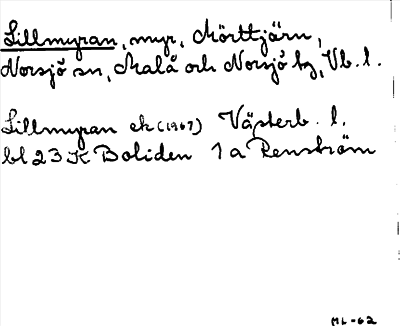 Lillmyran, myr, Mörttjärn,
Norsjö sn, Malå och Norsjö tg, Vb. l.
Lillmyran ek (1967) Västerb. l.
bl 23 K Boliden 1 a Renström
ML-62